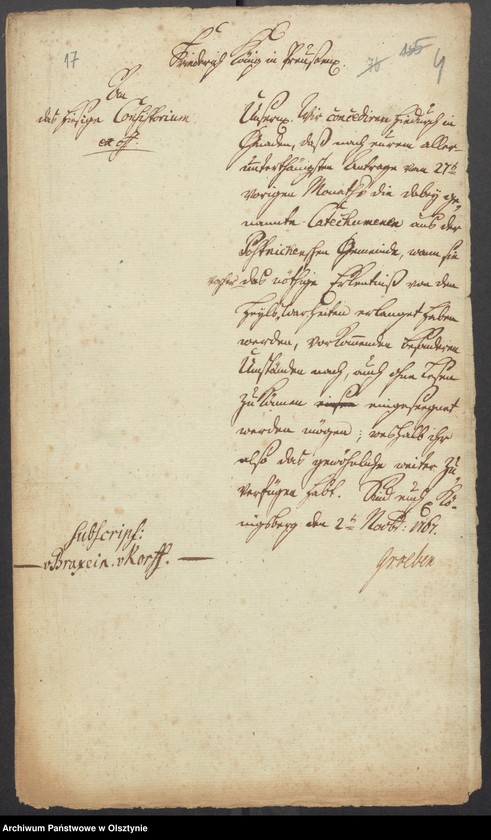 17
Friederich König in Preußen p.
76 105 4
An
das hiesige Consistorium
ex off:
Unsern p. Wir concediren hiedurch in
Gnaden, daß nach eurem aller
unterthänigsten Antrage vom 27ten
vorigen Monaths die dabey ge„
nannte Catechumenen aus der
Gemeinde, wann sie
vorher das nöthige Erkentniß von den
Heyls Warheiten erlanget haben
werden, vorkommenden besonderen
Umständen nach, auch ohne lesen
zu können eingesegnet
werden mögen; weshalb ihr
also das gewöhnliche weiter zu
verfügen habt. Sind euch p Kö„
nigsberg den 2ten Novbr: 1767.
subscrips:
v Braxein. v Korff.
Groeben
Archiwum Państwowe w Olsztynie